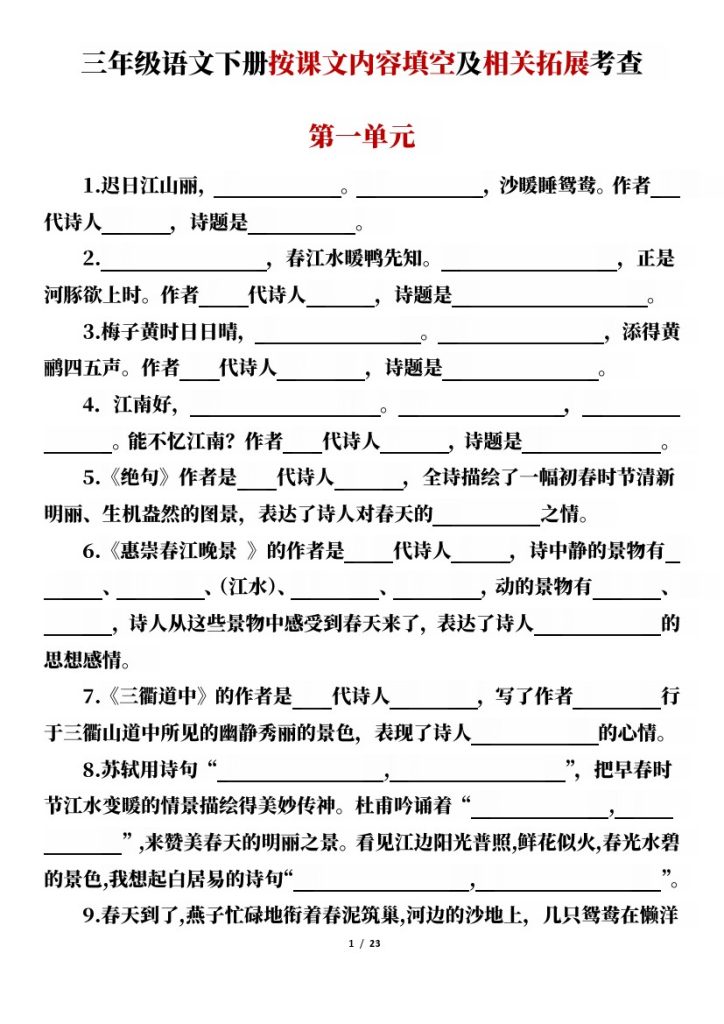 三年级语文下册按课文内容填空及相关拓展考查
第一单元
1.迟日江山丽，____________。____________，沙暖睡鸳鸯。作者___
代诗人_______，诗题是__________。
2.________________，春江水暖鸭先知。_________________，正是
河豚欲上时。作者_____代诗人_______，诗题是___________________。
3.梅子黄时日日晴，________________。________________，添得黄
鹂四五声。作者____代诗人_________，诗题是_______________。
4. 江南好，__________________。________________，__________
_______。能不忆江南？作者____代诗人_______，诗题是_____________。
5.《绝句》作者是____代诗人_______，全诗描绘了一幅初春时节清新
明丽、生机盎然的图景，表达了诗人对春天的___________之情。
6.《惠崇春江晚景 》的作者是_____代诗人______，诗中静的景物有__
______、_________、（江水）、_________、_________，动的景物有_______、
_______，诗人从这些景物中感受到春天来了，表达了诗人_____________的
思想感情。
7.《三衢道中》的作者是____代诗人_________，写了作者_________行
于三衢山道中所见的幽静秀丽的景色，表现了诗人_____________的心情。
8.苏轼用诗句“________________,_________________”，把早春时
节江水变暖的情景描绘得美妙传神。杜甫吟诵着“_____________,______
________”,来赞美春天的明丽之景。看见江边阳光普照,鲜花似火,春光水碧
的景色,我想起白居易的诗句“_________________,__________________”。
9.春天到了,燕子忙碌地衔着春泥筑巢,河边的沙地上，几只鸳鸯在懒洋
1 / 23